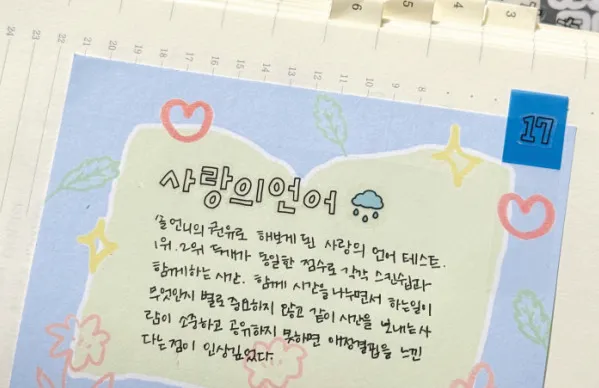 6
5
4
3
24
23
22
21
20
19
18
17
16
15
14
13
12
11
10
9
8
17
사랑의언어
언니의 권유로 해보게 된 사랑의 언어 테스트.
1위, 2위 두개가 동일한 점수로 각각 스킨쉽과
함께하는 시간. 함께 시간을 나누면서 하는일이
무엇인지 별로 중요하지 않고 같이 시간을 보내는 사
람이 소중하고 공유하지 못하면 애정결핍을 느낀
다는점이 인상깊었다.